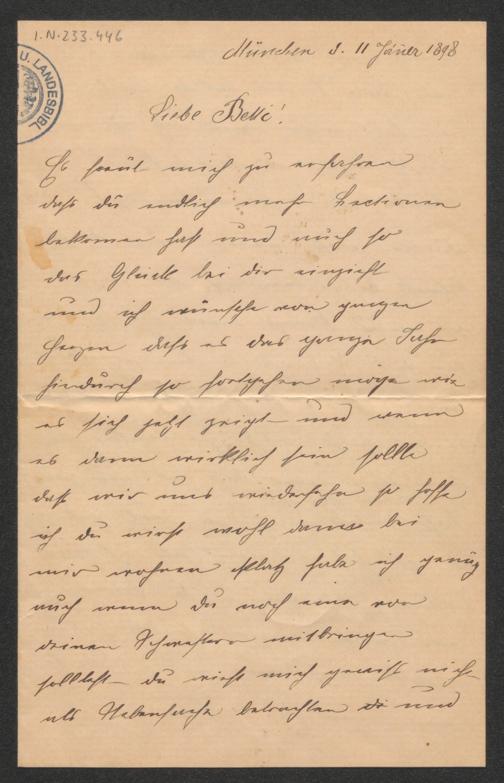 I.N. 233.446
U. LANDESBIBL
München d. 11 Jäner 1898
Liebe Betti!
Es freut mich zu erfahren
daß du endlich mehr Lectionen
bekomen hast und auch so
das Glück bei dir einzieht
und ich wünsche von ganzen
Herzen daß es das ganze Jahr
hindurch so fortgehen möge wie
es sich jetzt zeigt und wenn
es dann wirklich sein sollte
daß wir uns wiedersehn so hoffe
ich du wirst wohl dann bei
mir wohnen Platz habe ich genüg
auch wenn du noch eine von
deinen Schwestern mitbringen
solltest du wirst mich gewiß nicht
als Nebensache betrachten und